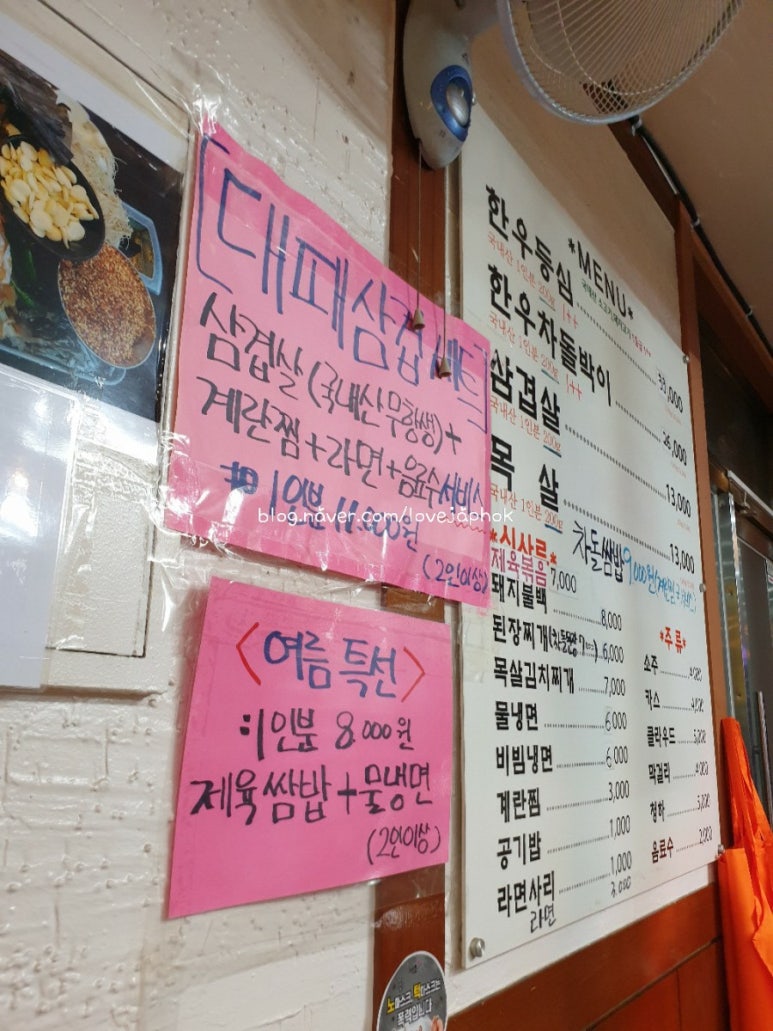 [대패삼겹세트]
삼겹살(국내산무항생)+
계란찜+라면+음료수서비스
1인분 11,000원
(2인이상)
<여름 특선>
1인분 8,000원
제육쌈밥+물냉면
(2인이상)
*MENU*
한우등심 33,000
국내산 1인분 200g 1++
한우차돌박이 26,000
국내산 1인분 200g 1++
삼겹살 13,000
국내산 1인분 200g
목살 13,000
국내산 1인분 200g
*식사류*
차돌쌈밥 9,000원
제육볶음 7,000
돼지불백 8,000
된장찌개 6,000
목살김치찌개 7,000
물냉면 6,000
비빔냉면 6,000
계란찜 3,000
공기밥 1,000
라면사리 1,000
라면 3,000
*주류*
소주 4,000
카스 4,000
클라우드 5,000
막걸리 4,000
청하 5,000
음료수 2,000
노마스크, 턱마스크는
폭력입니다
blog.naver.com/lovejaphok